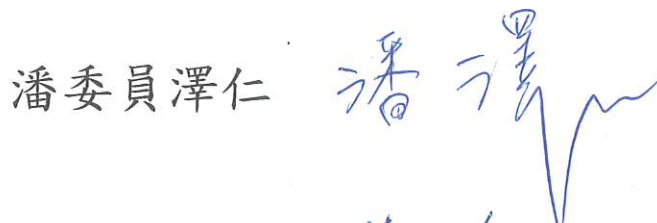 潘委員澤仁 潘澤